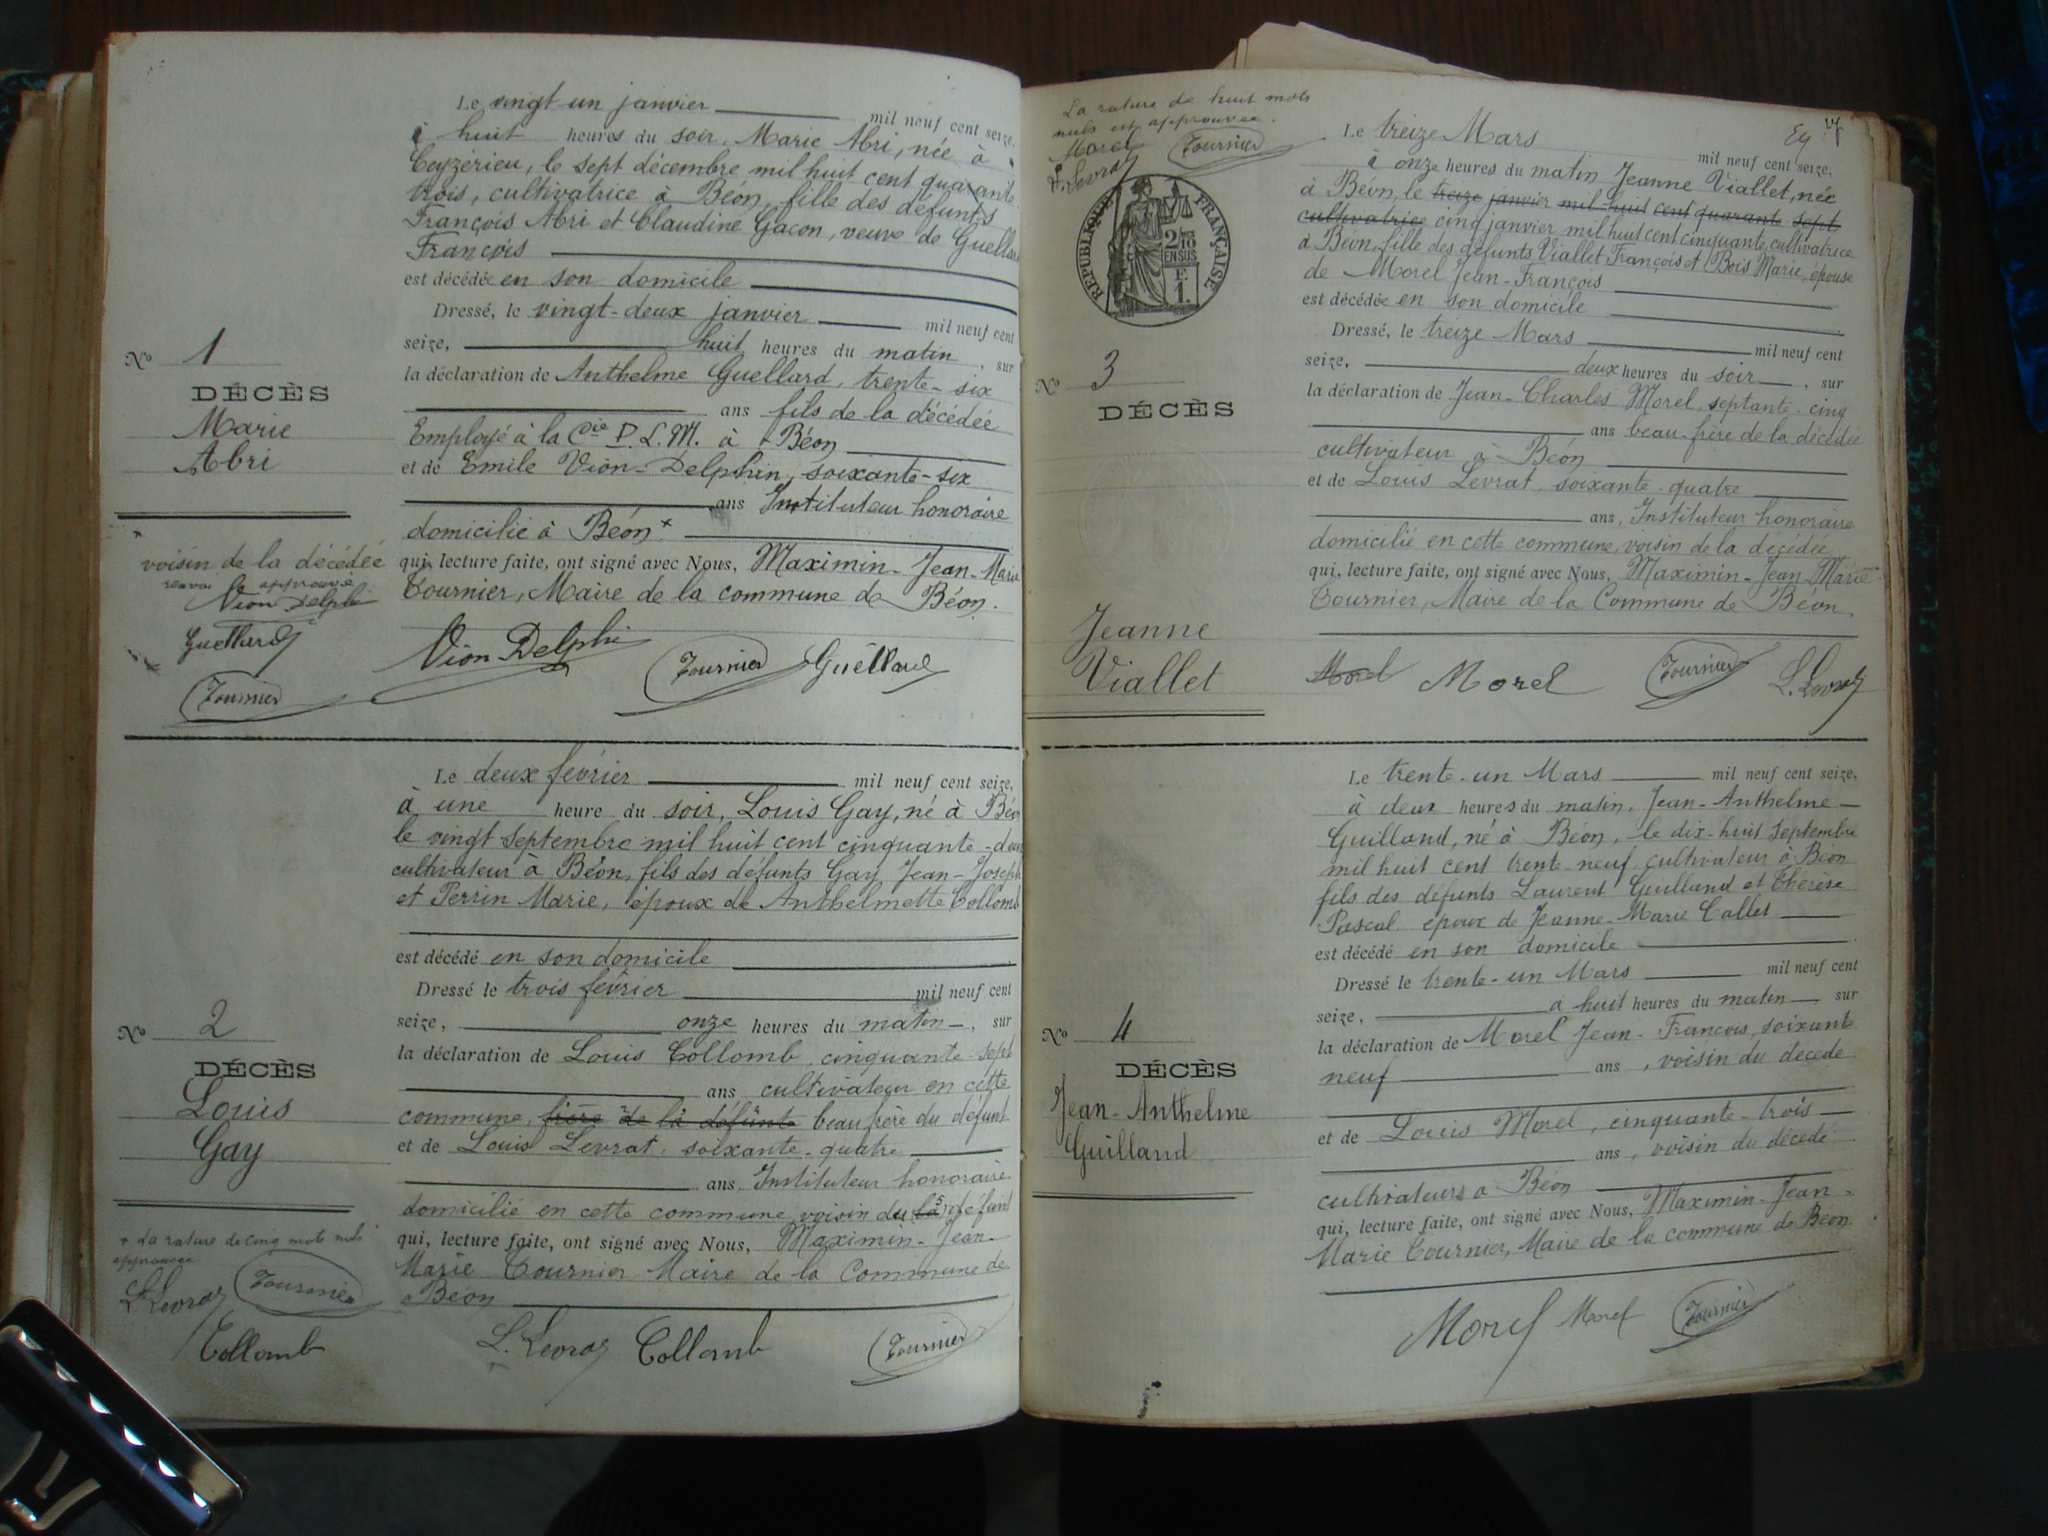 Le vingt un janvier mil neuf cent seize,
à huit heures du soir, Marie Abri, née à
Ceyzérieu, le sept décembre mil huit cent quarante
trois, cultivatrice à Béon, fille des défunts
François Abri et Claudine Gacon, veuve de Guellard
François
est décédée en son domicile
Dressé, le vingt-deux janvier mil neuf cent
seize, huit heures du matin, sur
la déclaration de Anthelme Guellard, trente-six
ans fils de la décédée
Employé à la Cie P. L. M. à Béon
et de Emile Vion-Delphin, soixante-six
ans Instituteur honoraire
domicilié à Béon +
qui, lecture faite, ont signé avec Nous, Maximin-Jean-Marie
Tournier, Maire de la commune de Béon.
Vion Delphi Tournier Guellard
No 1
DÉCÈS
Marie
Abri
voisin de la décédée
renvoi approuvé
Vion Delphi
Guellard
Tournier
Le deux février mil neuf cent seize,
à une heure du soir, Louis Gay, né à Béon
le vingt septembre mil huit cent cinquante-deux
cultivateur à Béon, fils des défunts Gay Jean-Joseph
et Perrin Marie, époux de Anthelmette Collomb
est décédé en son domicile
Dressé le trois février mil neuf cent
seize, onze heures du matin, sur
la déclaration de Louis Collomb, cinquante-sept
ans cultivateur en cette
commune, frère de la défunte beau frère du défunt
et de Louis Levrat, soixante-quatre
ans, Instituteur honoraire
domicilié en cette commune voisin du la défunt
qui, lecture faite, ont signé avec Nous, Maximin-Jean-
Marie Tournier Maire de la Commune de
Béon
L. Levrat Collomb Tournier
No 2
DÉCÈS
Louis
Gay
+ La rature de cinq mots nuls
approuvée
L. Levrat Tournier
Collomb
La rature de huit mots
nuls est approuvée.
Morel Tournier
L. Levrat
RÉPUBLIQUE FRANÇAISE
2/10
EN SUS
F.
1.
Le treize Mars mil neuf cent seize,
à onze heures du matin Jeanne Viallet, née
à Béon, le treize janvier mil huit cent quarante sept
cultivatrice cinq janvier mil huit cent cinquante, cultivatrice
à Béon, fille des défunts Viallet François et Bois Marie, épouse
de Morel Jean-François
est décédée en son domicile
Dressé, le treize Mars mil neuf cent
seize, deux heures du soir, sur
la déclaration de Jean-Charles Morel, septante-cinq
ans beau-frère de la décédée
cultivateur à Béon
et de Louis Levrat, soixante-quatre
ans, Instituteur honoraire
domicilié en cette commune, voisin de la décédée
qui, lecture faite, ont signé avec Nous, Maximin-Jean Marie
Tournier, Maire de la Commune de Béon
Morel Morel Tournier L. Levrat
No 3
DÉCÈS
Jeanne
Viallet
Le trente-un Mars mil neuf cent seize,
à deux heures du matin, Jean-Anthelme
Guilland, né à Béon, le dix-huit Septembre
mil huit cent trente-neuf, cultivateur à Béon
fils des défunts Laurent Guilland et Thérèse
Pascal, époux de Jeanne-Marie Callet
est décédé en son domicile
Dressé le trente-un Mars mil neuf cent
seize, à huit heures du matin sur
la déclaration de Morel Jean-François, soixante
neuf ans, voisin du décédé
et de Louis Morel, cinquante-trois
ans, voisin du décédé
cultivateurs à Béon
qui, lecture faite, ont signé avec Nous, Maximin-Jean-
Marie Tournier, Maire de la commune de Béon.
Morel Morel Tournier
No 4
DÉCÈS
Jean-Anthelme
Guilland